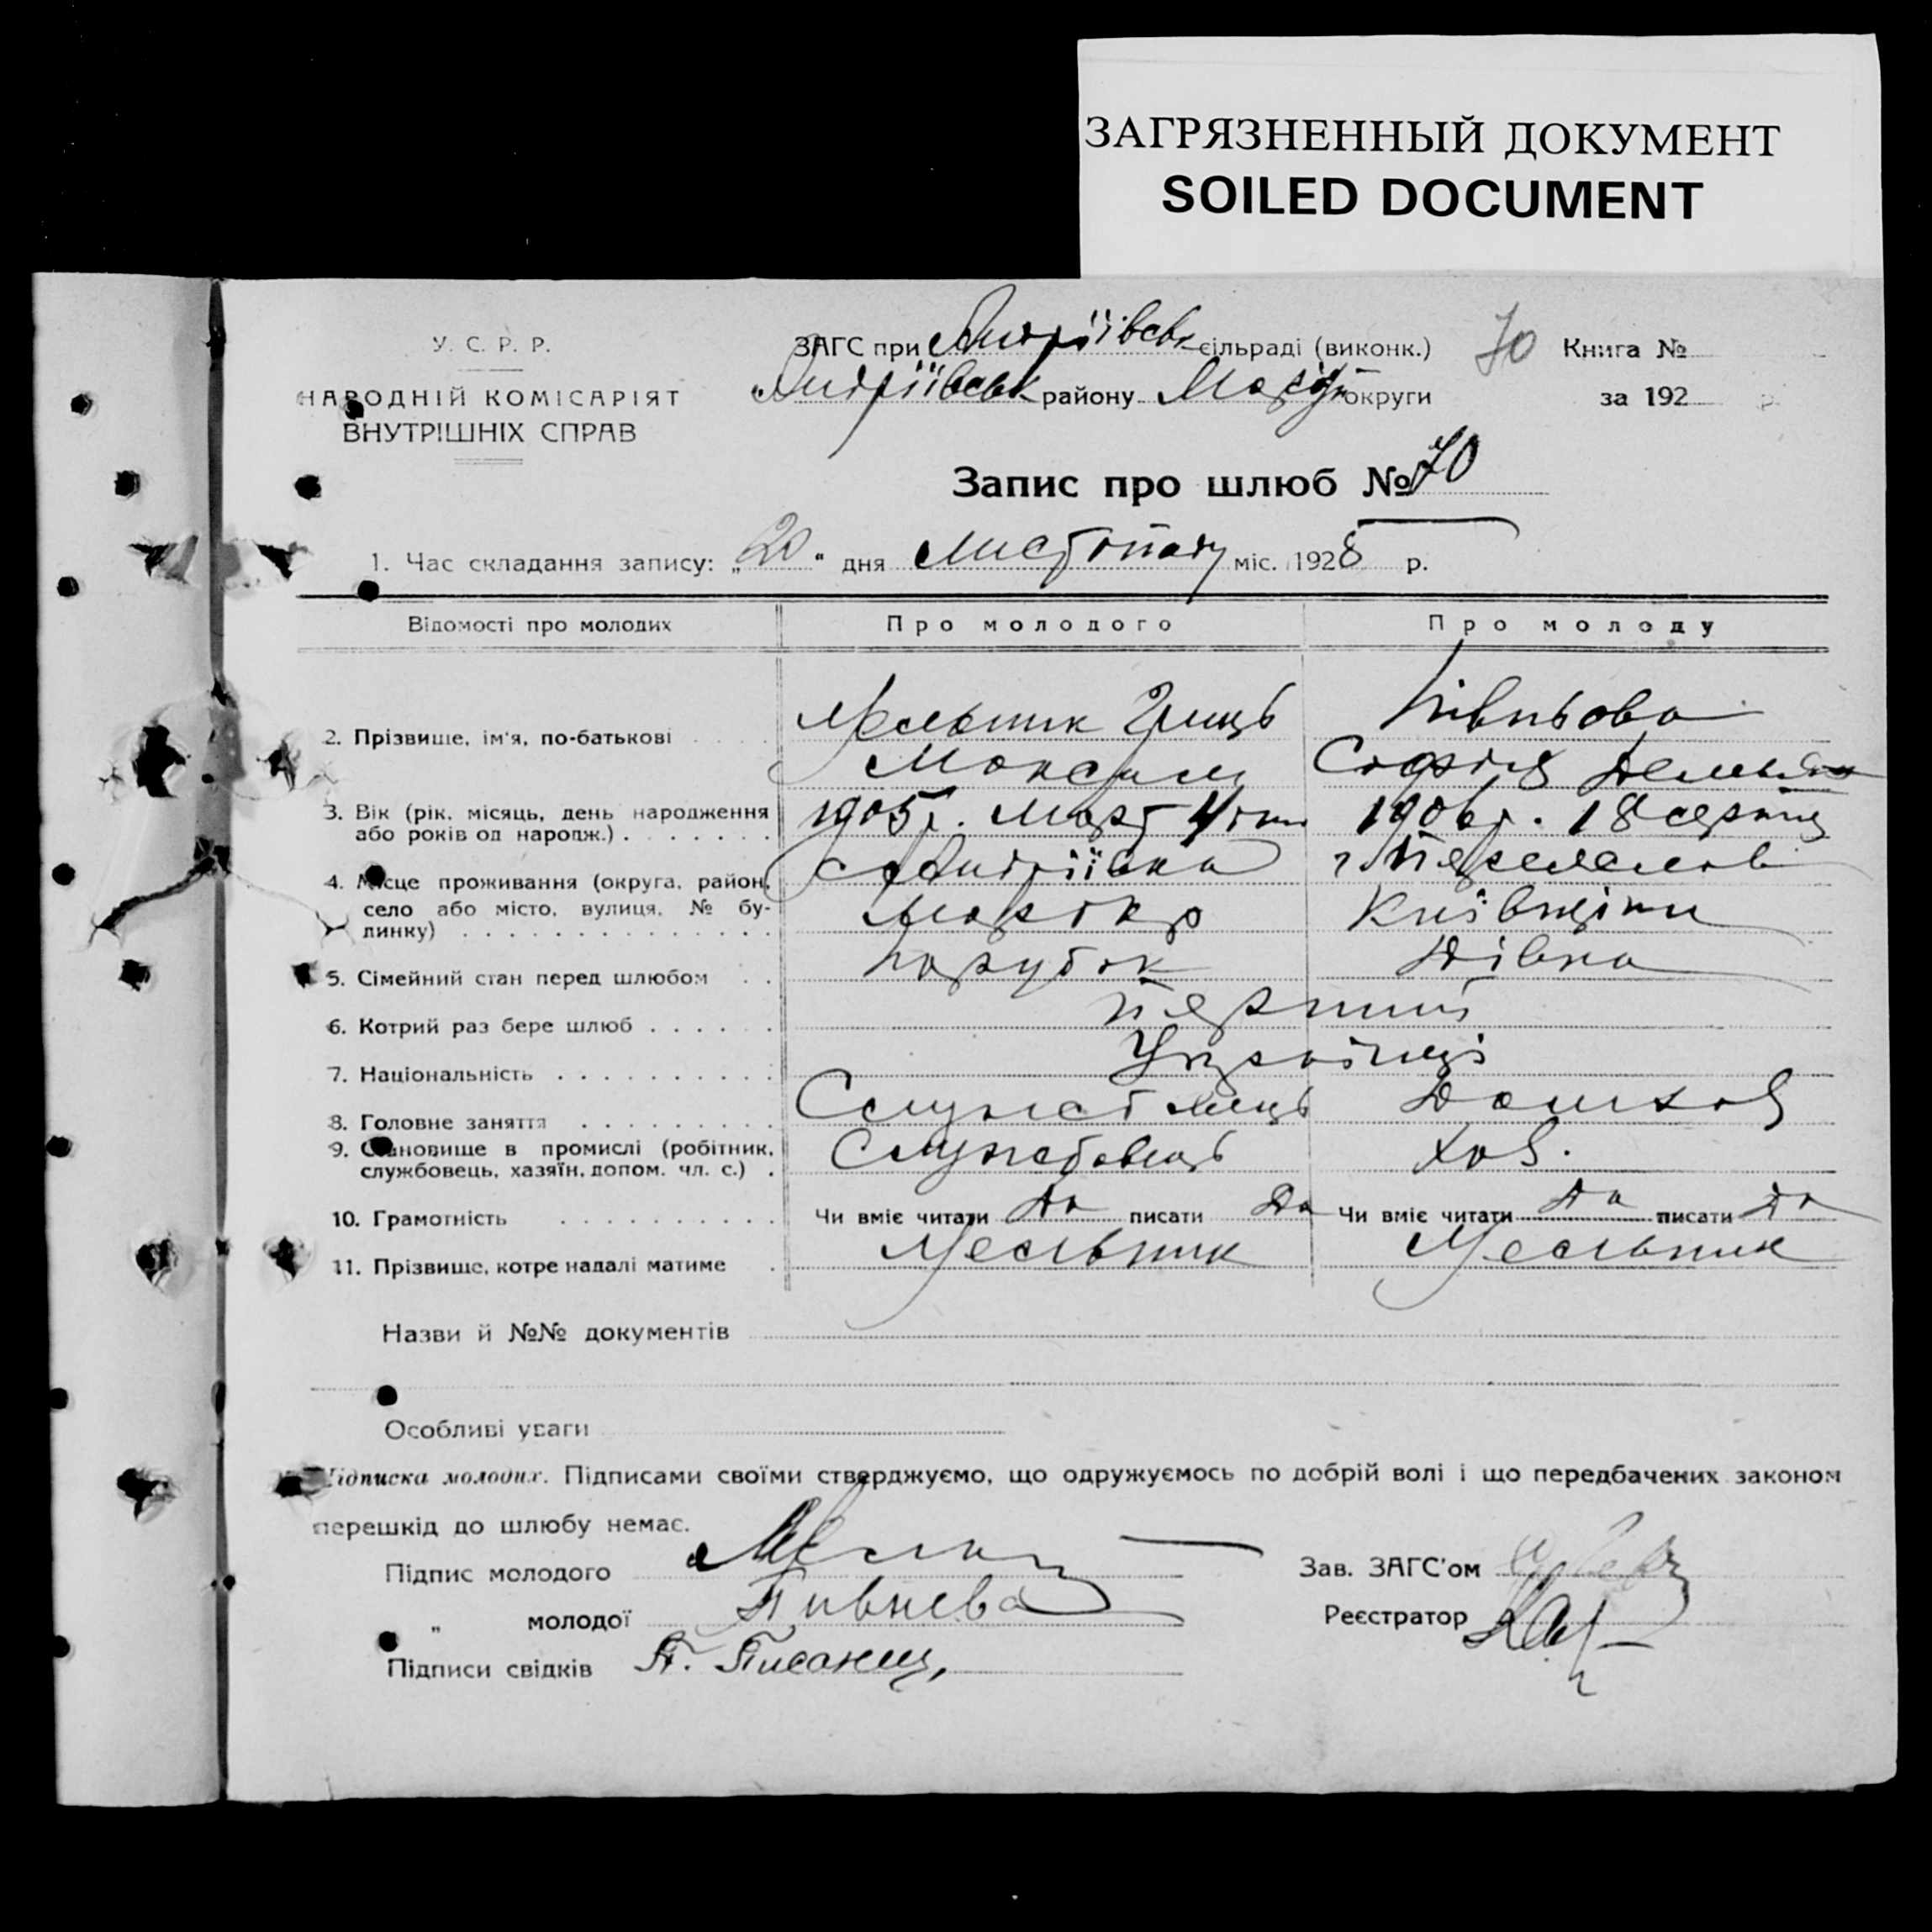 ЗАГРЯЗНЕННЫЙ ДОКУМЕНТ
SOILED DOCUMENT
У. С. Р. Р.
НАРОДНІЙ КОМІСАРІЯТ
ВНУТРІШНІХ СПРАВ
ЗАГС при Андріївськ сільраді (виконк.) 70 Книга №
Андріївськ району округи за 192 р.
Запис про шлюб № 70
1. Час складання запису: „20“ дня листопаду міс. 1928 р.
Відомості про молодих Про молодого Про молоду
2. Прізвище, ім'я, по-батькові Мельник Гриць Півньова
Максим Софія
3. Вік (рік, місяць, день народження 1905 р. Март 4 1906 р. 18 серпня
або років од народж.)
4. Місце проживання (округа, район, с Андріївка
село або місто, вулиця, № бу- Київщини
динку)
5. Сімейний стан перед шлюбом парубок Дівка
6. Котрий раз бере шлюб перший
7. Національність Українці
8. Головне заняття
9. Становище в промислі (робітник, Службовець хаз.
службовець, хазяїн, допом. чл. с.)
10. Грамотність Чи вміє читати да писати да Чи вміє читати да писати да
11. Прізвище, котре надалі матиме Мельник Мельник
Назви й №№ документів
Особливі уваги
Підписка молодих. Підписами своїми стверджуємо, що одружуємось по добрій волі і що передбачених законом
перешкід до шлюбу немає.
Підпис молодого Зав. ЗАГС'ом
„ молодої Пивнева Реєстратор
Підписи свідків П. Писанец